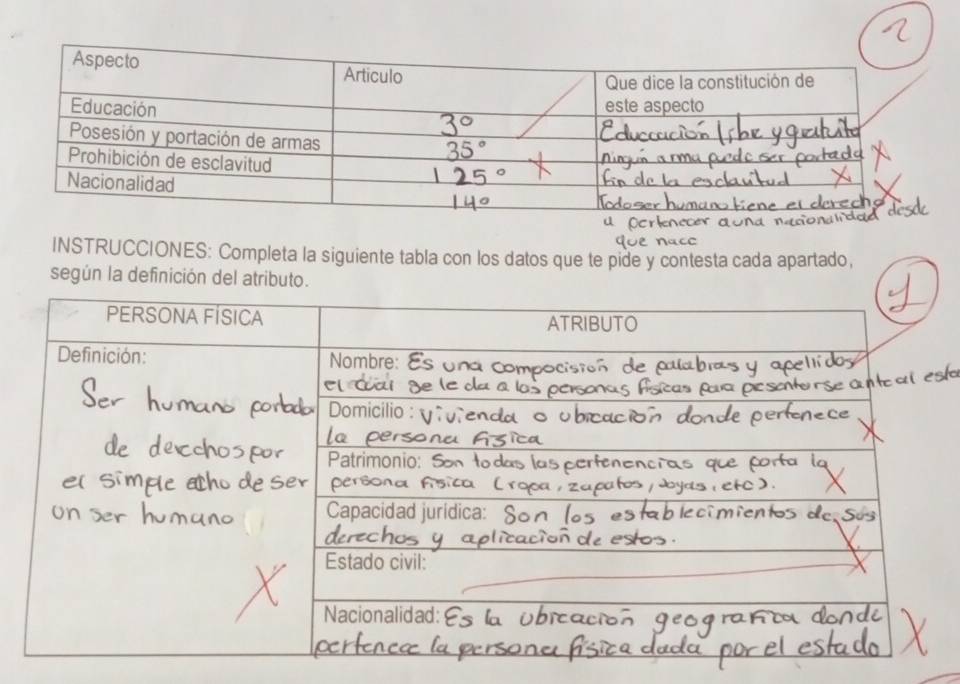 2
Aspecto Articulo Que dice la constitución de este aspecto
Educación 3° Educcación libre y gratuita
Posesión y portación de armas 35° ningún arma puede ser portada
Prohibición de esclavitud 125° fin de la esclavitud
Nacionalidad 14° Todo ser humano tiene el derecho desde
a pertenecer a una nacionalidad
que nace
INSTRUCCIONES: Completa la siguiente tabla con los datos que te pide y contesta cada apartado,
según la definición del atributo.
1
PERSONA FÍSICA ATRIBUTO
Definición:
Ser humano portado
de derechos por
el simple echo de ser
un ser humano
Nombre: Es una compocisión de palabras y apellidos
el cual se le da a las personas físicas para presentarse ante al
Domicilio: vivienda o ubicación donde pertenece
la persona física
Patrimonio: Son todas las pertenencias que porta la
persona física (ropa, zapatos, joyas, etc).
Capacidad jurídica: Son los establecimientos de sus
derechos y aplicacion de estos.
Estado civil:
Nacionalidad: Es la ubicación geografica donde
pertenece la persona física dada por el estado